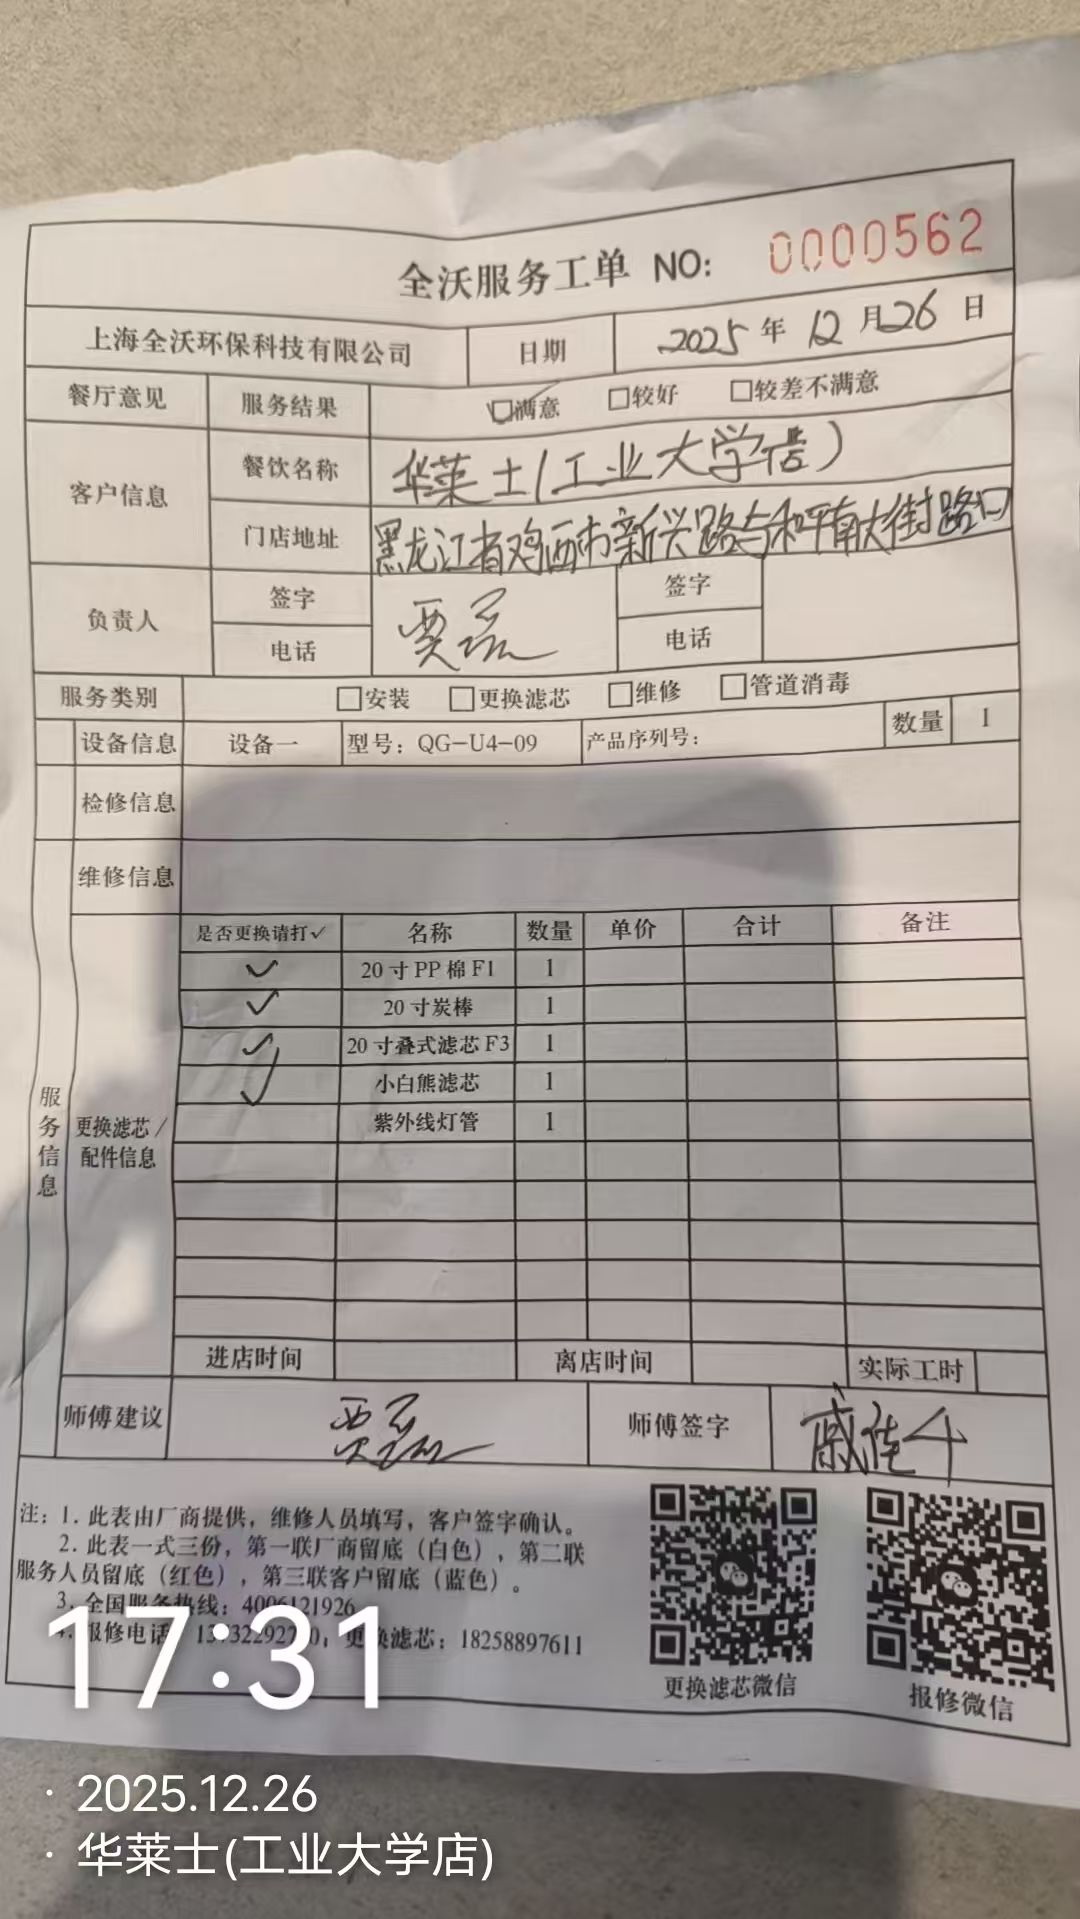 全沃服务工单 NO: 0000562
上海全沃环保科技有限公司 日期 2025 年 12 月 26 日
餐厅意见 服务结果 ☑满意 □较好 □较差不满意
客户信息 餐饮名称 华莱士(工业大学店)
门店地址 黑龙江省鸡西市新兴路与和平南大街路口
负责人 签字 贾磊 签字
电话 电话
服务类别 □安装 □更换滤芯 □维修 □管道消毒
设备信息 设备一 型号: QG-U4-09 产品序列号: 数量 1
检修信息
维修信息
服务信息
更换滤芯/配件信息
是否更换请打✓ 名称 数量 单价 合计 备注
✓ 20寸PP棉F1 1
✓ 20寸炭棒 1
✓ 20寸叠式滤芯F3 1
✓ 小白熊滤芯 1
紫外线灯管 1
进店时间 离店时间 实际工时
师傅建议 贾磊 师傅签字
注: 1. 此表由厂商提供, 维修人员填写, 客户签字确认。
2. 此表一式三份, 第一联厂商留底(白色), 第二联
服务人员留底(红色), 第三联客户留底(蓝色)。
3. 全国服务热线: 4006121926
报修电话 更换滤芯: 18258897611
更换滤芯微信 报修微信
17:31
· 2025.12.26
· 华莱士(工业大学店)